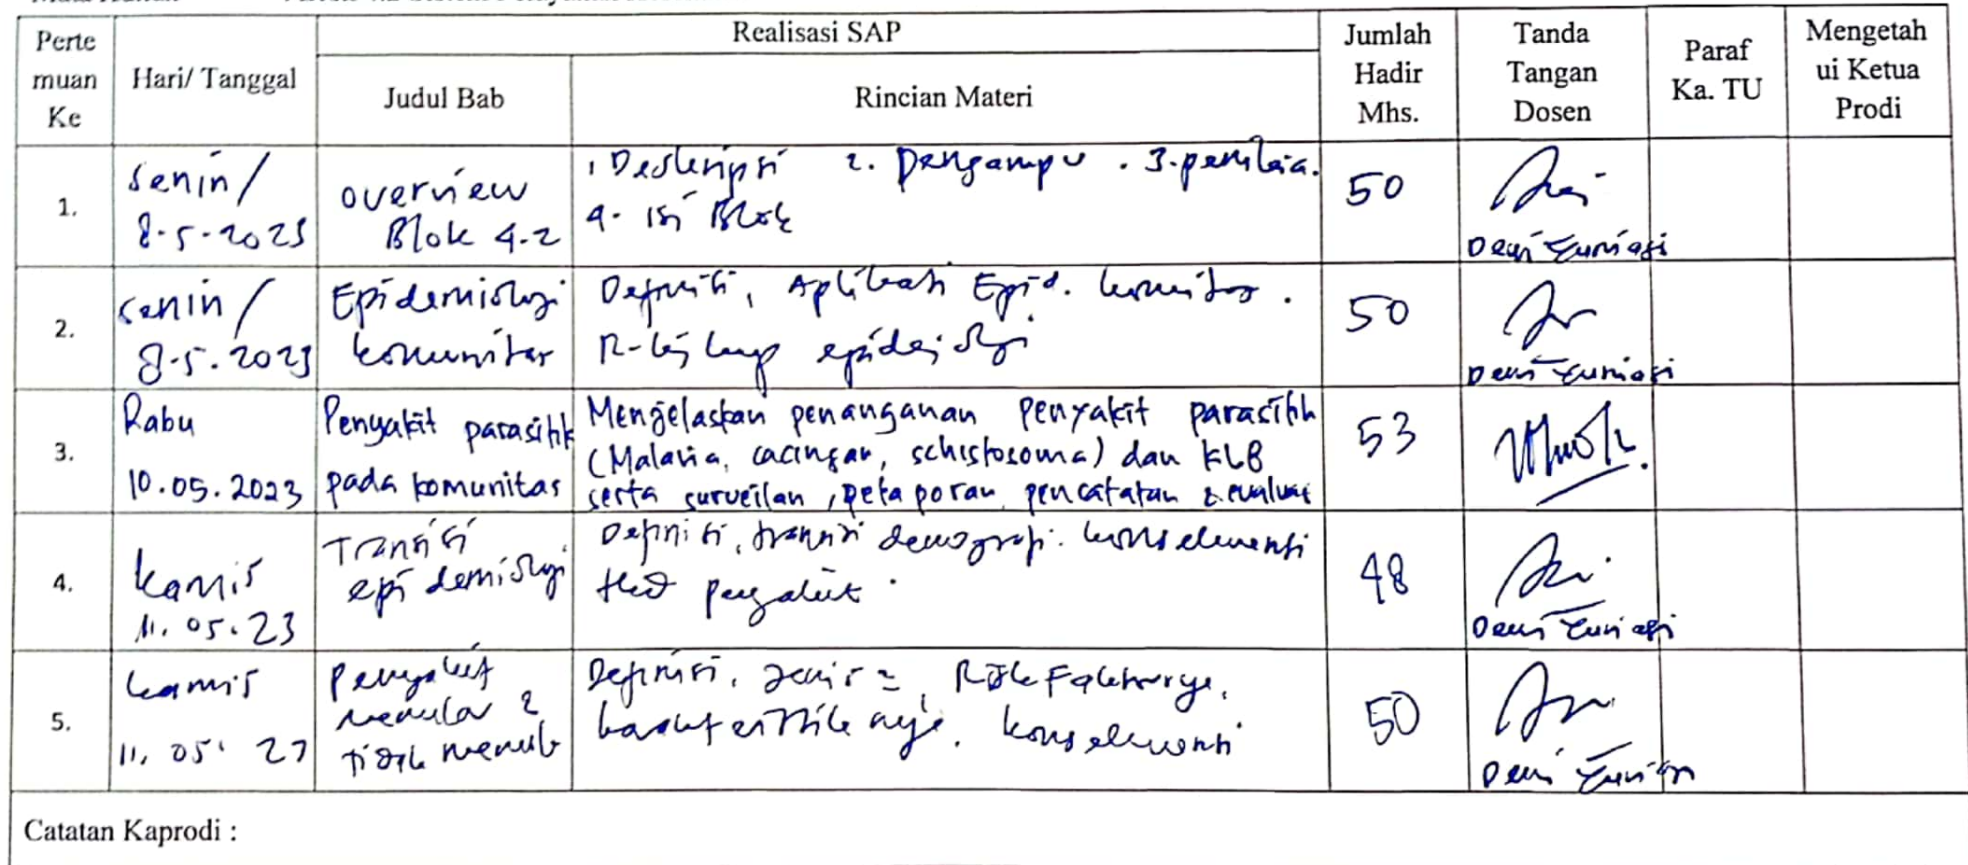 Perte
muan
Ke
Hari/ Tanggal
Realisasi SAP
Judul Bab
Rincian Materi
Jumlah
Hadir
Mhs.
Tanda
Tangan
Dosen
Paraf
Ka. TU
Mengetah
ui Ketua
Prodi
1.
Senin/
8-5-2023
overview
Blok 4.2
1 Deskripsi 2. Pengampu . 3. penilaia.
4. isi Blok
50
2.
senin/
8-5. 2023
Epidemiologi
komunitas
Definisi, Aplikasi Epid. komunitas.
50
3.
Rabu
10.05.2023
Penyakit parasitik
pada komunitas
Mengjelaskan penanganan penyakit parasitik
(Malaria, cacingan, schistosoma) dan KLB
serta surveilan, pelaporan, pencatatan & evaluasi
53
4.
Kamis
11.05.23
Transisi
epidemiologi
Definisi, transisi demografi. konsekuensi
thd penyakit.
48
5.
kamis
11. 05. 23
Penyakit
menular &
tidak menular
Definisi,
50
Catatan Kaprodi :